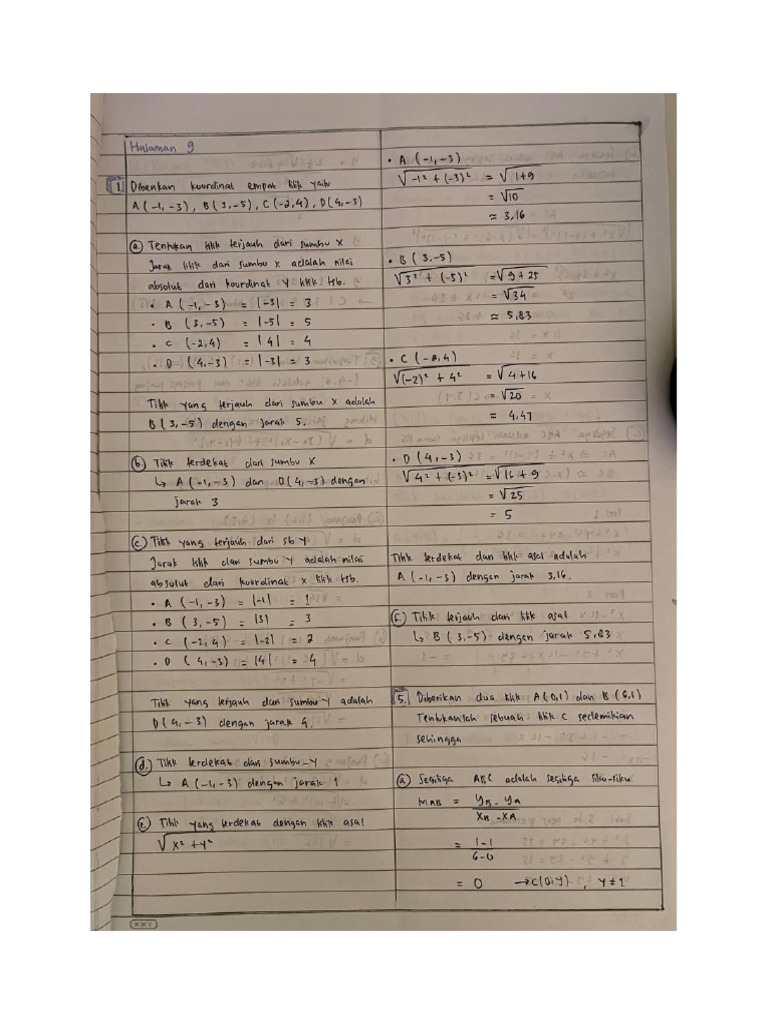 Halaman 9
1. Diberikan koordinat empat titik yaitu
A (-1, -3) , B (3, -5) , C (-2, 4) , D (4, -3)
a) Tentukan titik terjauh dari sumbu X
Jarak titik dari sumbu x adalah nilai
absolut dari koordinat y titik tsb.
• A (-1, -3) = |-3| = 3
• B (3, -5) = |-5| = 5
• C (-2, 4) = |4| = 4
• D (4, -3) = |-3| = 3
Titik yang terjauh dari sumbu x adalah
B (3, -5) dengan jarak 5.
b) Titik terdekat dari sumbu X
↳ A (-1, -3) dan D (4, -3) dengan
jarak 3
c) Titik yang terjauh dari sb Y
Jarak titik dari sumbu y adalah nilai
absolut dari koordinat x titik tsb.
• A (-1, -3) = |-1| = 1
• B (3, -5) = |3| = 3
• C (-2, 4) = |-2| = 2
• D (4, -3) = |4| = 4
Titik yang terjauh dari sumbu Y adalah
D (4, -3) dengan jarak 4.
d. Titik terdekat dari sumbu -Y
↳ A (-1, -3) dengan jarak 1
e) Titik yang terdekat dengan titik asal
√x² + y²
KKY
• A (-1, -3)
√-1² + (-3)² = √1+9
= √10
≈ 3,16
• B (3, -5)
√3² + (-5)² = √9 + 25
= √34
≈ 5,83
• C (-2, 4)
√(-2)² + 4² = √4+16
= √20
≈ 4,47
• D (4, -3)
√4² + (-3)² = √16 + 9
= √25
= 5
Titik terdekat dari titik asal adalah
A (-1, -3) dengan jarak 3,16.
f. Titik terjauh dari titik asal
↳ B (3, -5) dengan jarak 5,83
5. Diberikan dua titik A (0,1) dan B (6,1)
Tentukanlah sebuah titik C sedemikian
sehingga
a) Segitiga ABC adalah segitiga siku-siku
MAB = yB - yA / xB - xA
= 1-1 / 6-0
= 0 → C(0,y) , y ≠ 1